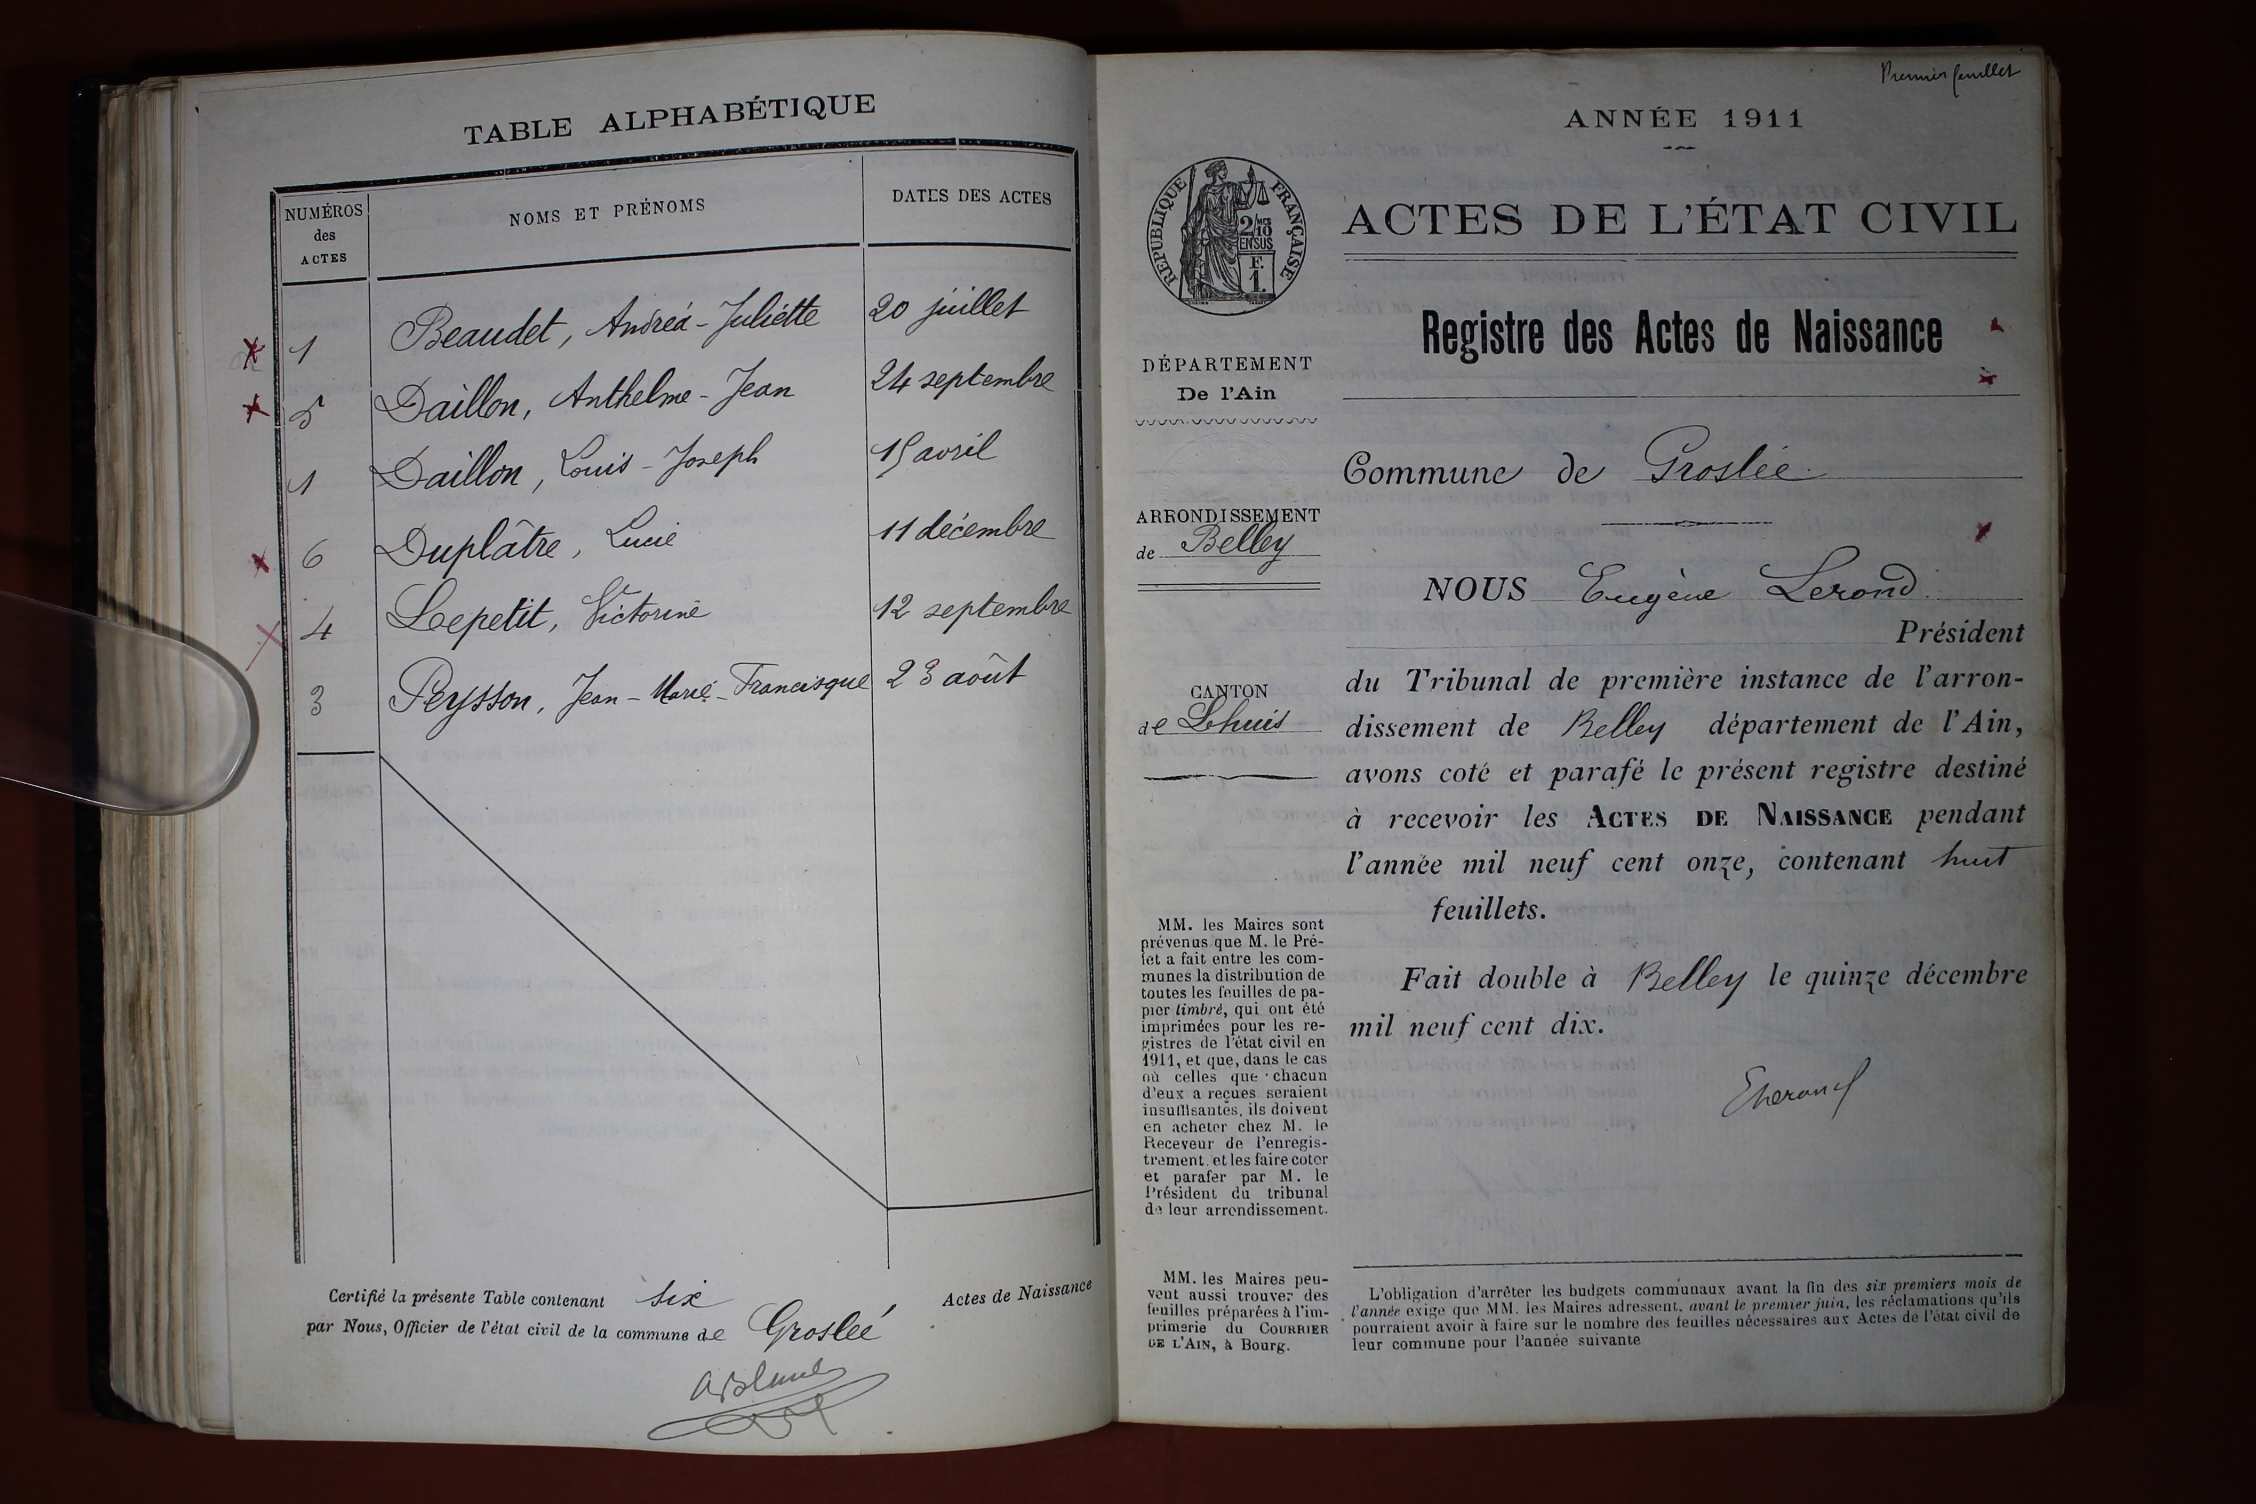 TABLE ALPHABÉTIQUE
NUMÉROS des ACTES
NOMS ET PRÉNOMS
DATES DES ACTES
1 Beaudet, Andréa-Juliette 20 juillet
5 Daillon, Anthelme-Jean 24 septembre
1 Daillon, Louis-Joseph 15 avril
6 Duplâtre, Lucie 11 décembre
4 Lepetit, Victorine 12 septembre
3 Peysson, Jean-Marie-Francisque 23 août
Certifié la présente Table contenant six Actes de Naissance
par Nous, Officier de l'état civil de la commune de Groslée
Premier feuillet
ANNÉE 1911
RÉPUBLIQUE FRANÇAISE
2/10
EN SUS
F.
1.
ACTES DE L'ÉTAT CIVIL
Registre des Actes de Naissance
DÉPARTEMENT
De l'Ain
ARRONDISSEMENT
de Belley
CANTON
de Lhuis
MM. les Maires sont
prévenus que M. le Pré-
fet a fait entre les com-
munes la distribution de
toutes les feuilles de pa-
pier timbré, qui ont été
imprimées pour les re-
gistres de l'état civil en
1911, et que, dans le cas
où celles que chacun
d'eux a reçues seraient
insuffisantes, ils doivent
en acheter chez M. le
Receveur de l'enregis-
trement et les faire coter
et parafer par M. le
Président du tribunal
de leur arrondissement.
MM. les Maires peu-
vent aussi trouver des
feuilles préparées à l'im-
primerie du COURRIER
DE L'AIN, à Bourg.
Commune de Groslée
NOUS Eugène Lerond
Président
du Tribunal de première instance de l'arron-
dissement de Belley département de l'Ain,
avons coté et parafé le présent registre destiné
à recevoir les ACTES DE NAISSANCE pendant
l'année mil neuf cent onze, contenant huit
feuillets.
Fait double à Belley le quinze décembre
mil neuf cent dix.
L'obligation d'arrêter les budgets communaux avant la fin des six premiers mois de
l'année exige que MM. les Maires adressent, avant le premier juin, les réclamations qu'ils
pourraient avoir à faire sur le nombre des feuilles nécessaires aux Actes de l'état civil de
leur commune pour l'année suivante